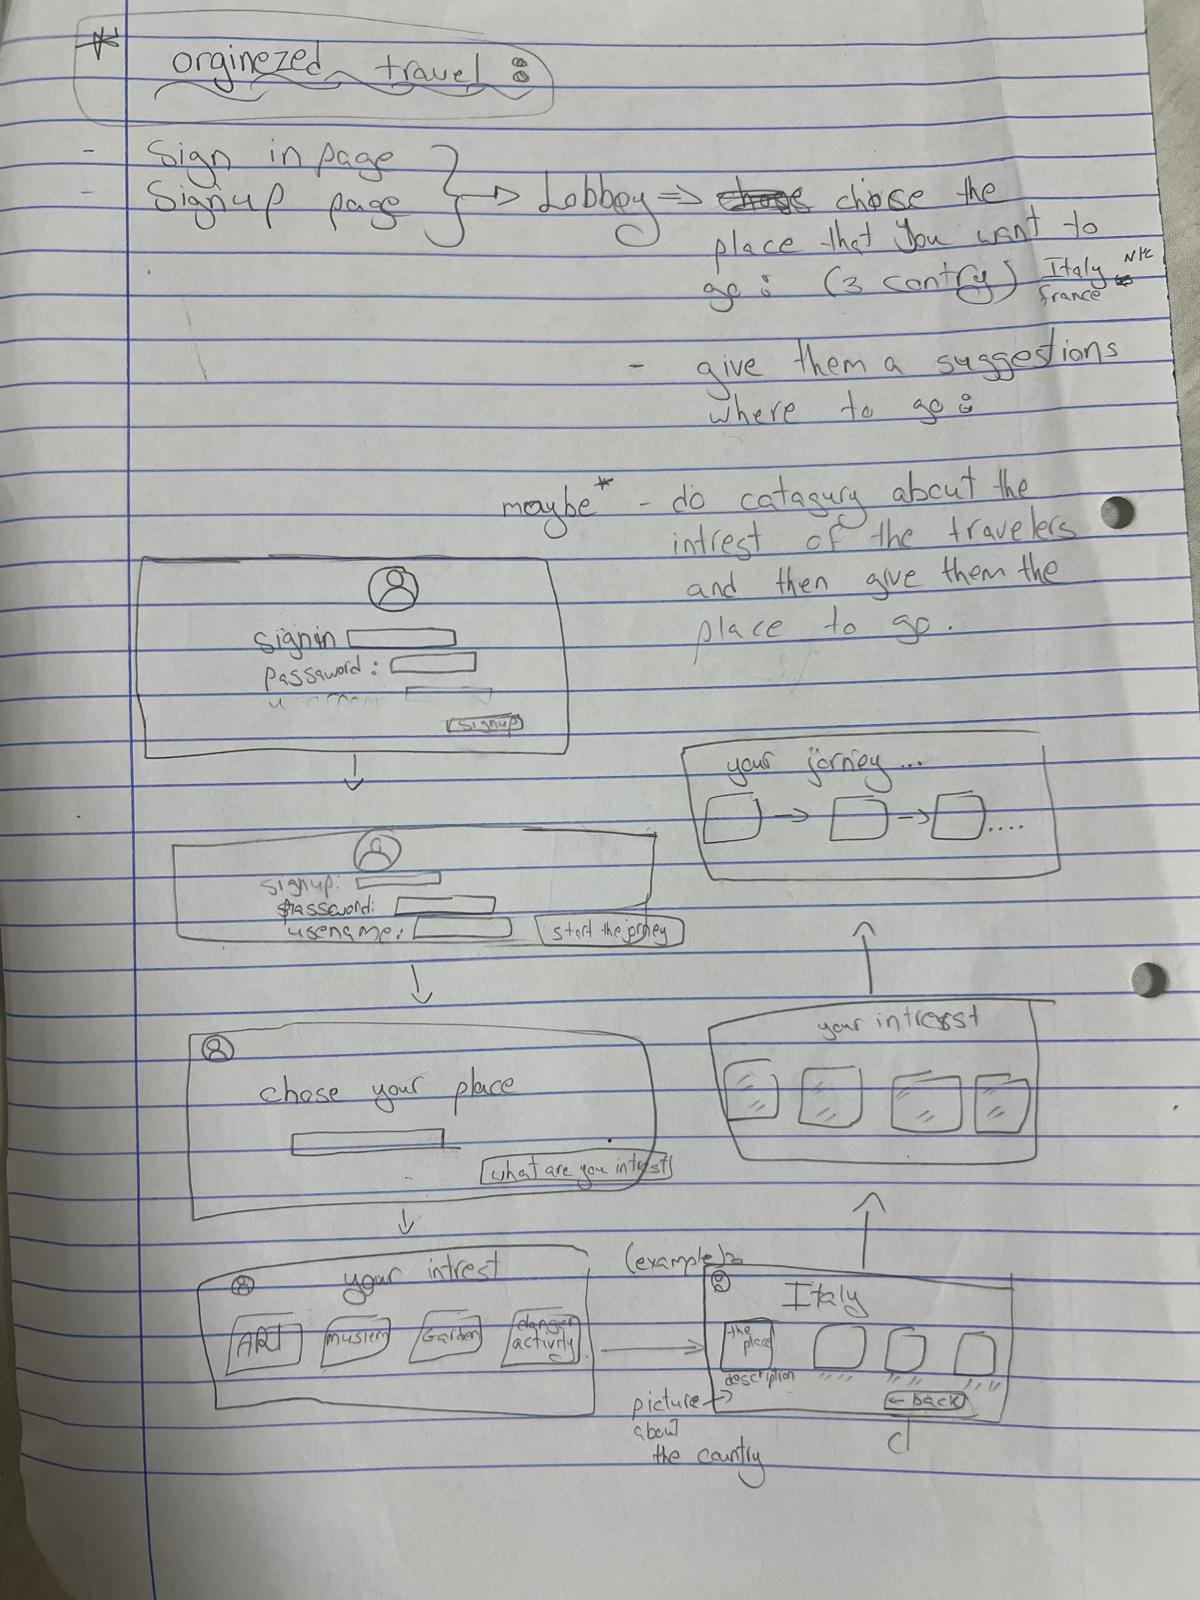 orginezed travel :
- Sign in page
- Signup page } → Lobbey ⇒ chose the
place that you want to
go : (3 contry) Italy NYC
france
- give them a suggestions
where to go :
maybe* - do catagury about the
intrest of the travelers
and then give them the
place to go.
signin
Passaword :
signup
your jorney ...
signup:
Password:
usename:
start the jorney
chose your place
what are you intrest
your intresst
your intrest
ART
musiem
Garden
danger
activity
(example):
Italy
the
place
description
picture →
about
the country
← back